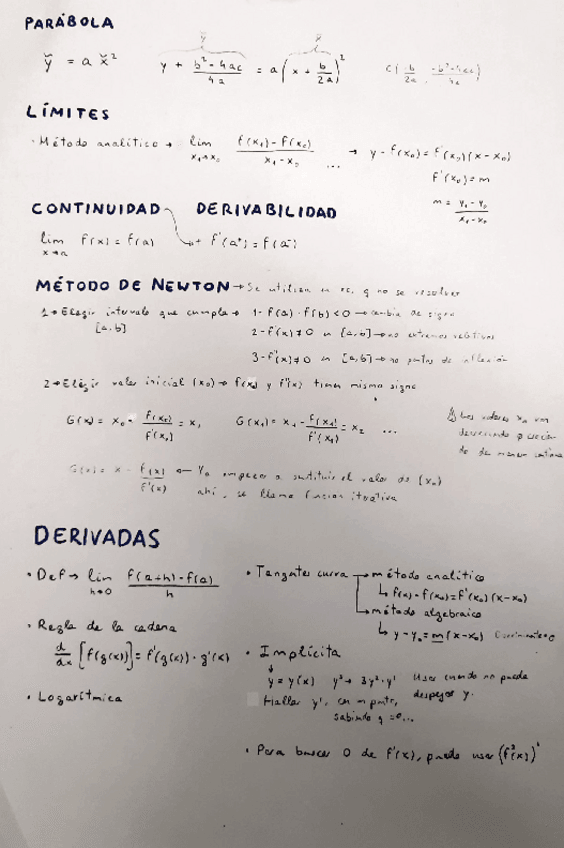 PARÁBOLA
y̌ = a x̌²
y̌ x̌
y + (b² - 4ac)/4a = a(x + b/2a)²
C(-b/2a, (-b²-4ac)/4a)
LÍMITES
· Método analítico → lim x₁→x₀ (f(x₁) - f(x₀))/(x₁ - x₀) ... → y - f(x₀) = f'(x₀)(x - x₀)
f'(x₀) = m
m = (y₁ - y₀)/(x₁ - x₀)
CONTINUIDAD DERIVABILIDAD
lim x→a f(x) = f(a) → + f'(a⁺) = f(a⁻)
MÉTODO DE NEWTON → Se utiliza en ec. q no se resolver
1 → Elegir intervalo que cumpla → 1 - f(a) · f(b) < 0 → cambia de signo
[a, b]
2 - f'(x) ≠ 0 en [a, b] → no extremos relativos
3 - f''(x) ≠ 0 en [a, b] → no puntos de inflexión
2 → Elegir valor inicial (x₀) → f(x₀) y f''(x) tienen mismo signo
G(x) = x₀ - f(x₀)/f'(x₀) = x₁
G(x₁) = x₁ - f(x₁)/f'(x₁) = x₂ ...
Los valores xₙ van
de de manera continua
G(x) = x - f(x)/f'(x) ← Ya empezar a sustituir el valor de (x₀)
ahí, se llama función iterativa
DERIVADAS
· Def → lim h→0 (f(a+h) - f(a))/h
· Regla de la cadena
d/dx [f(g(x))] = f'(g(x)) · g'(x)
· Logarítmica
· Tangentes curva → método analítico
↳ f(x) - f(x₀) = f'(x₀)(x - x₀)
→ método algebraico
↳ y - y₀ = m(x - x₀) Discriminante = 0
· Implícita
y = y(x) y³ → 3y² · y' Usar cuando no pueda
despejar y.
Hallar y', en un punto,
sabiendo q = 0...
· Para buscar 0 de f'(x), puedo usar (f²(x))'